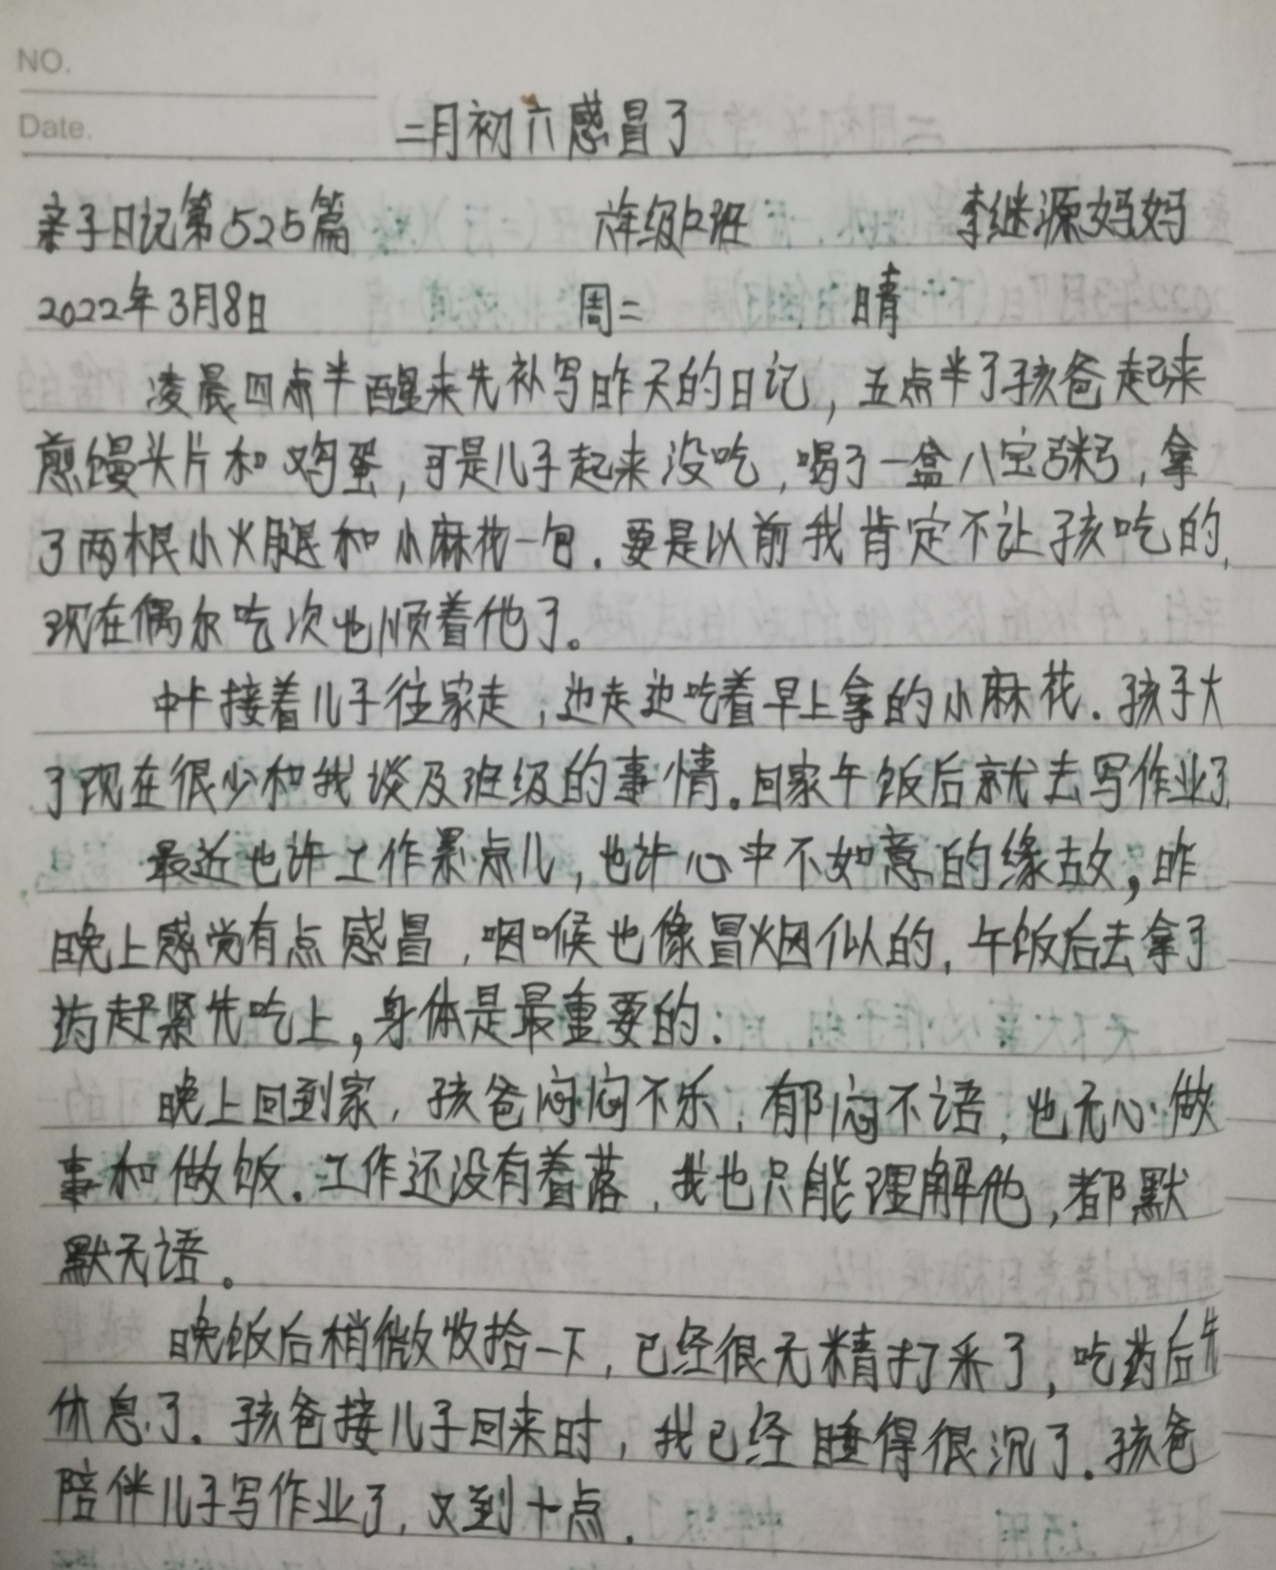 NO.
Date.
二月初六感冒了
亲子日记第525篇 六年级2班 李继源妈妈
2022年3月8日 周二 晴
凌晨四点半醒来先补写昨天的日记，五点半了孩爸起来
煎馒头片和鸡蛋，可是儿子起来没吃，喝了一盒八宝粥，拿
了两根小火腿和小麻花一包．要是以前我肯定不让孩吃的，
现在偶尔吃次也顺着他了。
中午接着儿子往家走，边走边吃着早上拿的小麻花．孩子大
了现在很少和我谈及班级的事情。回家午饭后就去写作业了
最近也许工作累点儿，也许心中不如意的缘故，昨
晚上感觉有点感冒，咽喉也像冒烟似的，午饭后去拿了
药赶紧先吃上，身体是最重要的．
晚上回到家，孩爸闷闷不乐，郁闷不语，也无心做
事和做饭．工作还没有着落，我也只能理解他，都默
默无语。
晚饭后稍微收拾一下，已经很无精打采了，吃药后先
休息了．孩爸接儿子回来时，我已经睡得很沉了．孩爸
陪伴儿子写作业了，又到十点．